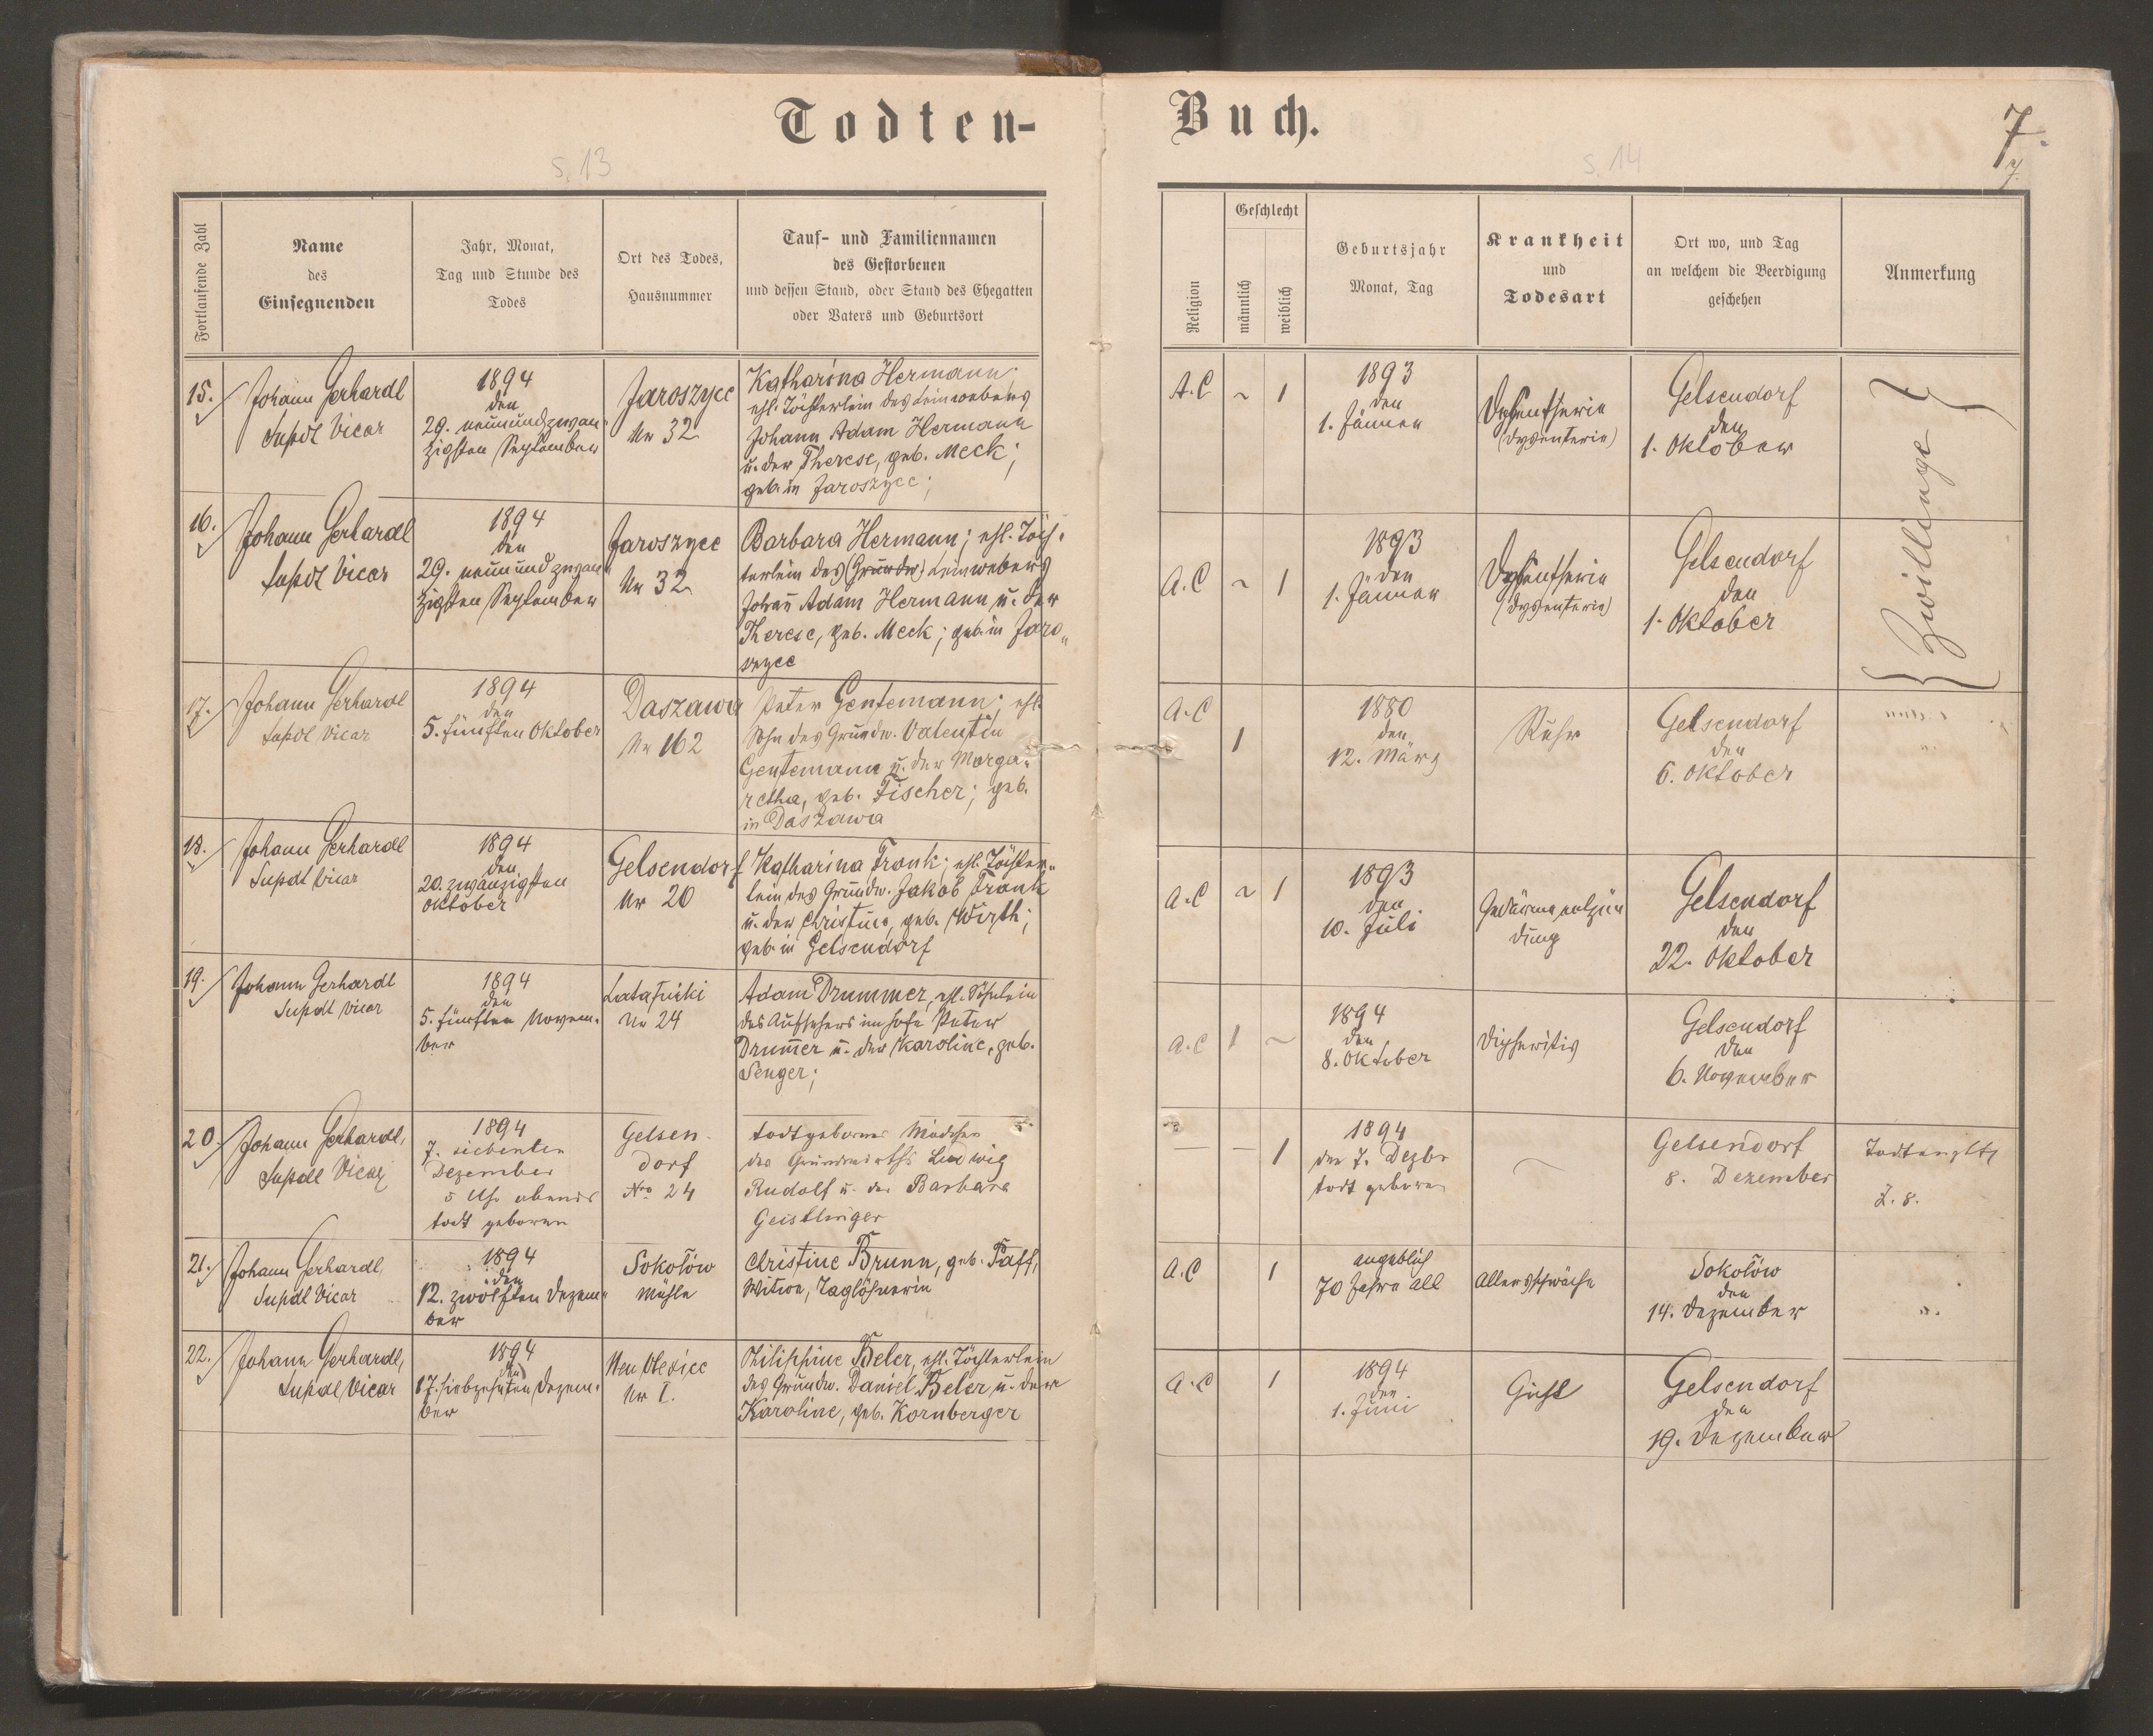 Todten-
Buch.
s. 13
s. 14
7.
7.
Fortlaufende Zahl
Name
des
Einsegnenden
Jahr, Monat,
Tag und Stunde des
Todes
Ort des Todes,
Hausnummer
Tauf- und Familiennamen
des Gestorbenen
und dessen Stand, oder Stand des Ehegatten
oder Vaters und Geburtsort
Religion
Geschlecht
männlich
weiblich
Geburtsjahr
Monat, Tag
Krankheit
und
Todesart
Ort wo, und Tag
an welchem die Beerdigung
geschehen
Anmerkung
15.
Johann Gerhardt
Supdt Vicar
1894
den
29. neunundzwan-
zigsten September
Jaroszyce
Nr 32
Katharina Hermann;
ehl. Töchterlein des Leinwebers
Johann Adam Hermann
u. der Therese, geb. Meck;
geb. in Jaroszyce;
A.C ~ 1
1893
den
1. Jänner
Dysentherie
(Dysenterie)
Gelsendorf
den
1. Oktober
Zwillinge
16.
Johann Gerhardt
Supdt Vicar
1894
den
29. neunundzwan-
zigsten September
Jaroszyce
Nr 32
Barbara Hermann; ehl. Töch-
terlein des (Grundw) Leinwebers
Johann Adam Hermann u. der
Therese, geb. Meck; geb. in Jaro-
szyce
A.C ~ 1
1893
den
1. Jänner
Dysentherie
(Dysenterie)
Gelsendorf
den
1. Oktober
17.
Johann Gerhardt
Supdt Vicar
1894
den
5. fünften Oktober
Daszawa
Nr 162
Peter Gentemann; ehl.
Sohn des Grundw. Valentin
Gentemann u. der Marga-
retha, geb. Fischer; geb.
in Daszawa
A.C
1
1880
den
12. März
Ruhr
Gelsendorf
den
6. Oktober
18.
Johann Gerhardt
Supdt Vicar
1894
den
20. zwanzigsten
Oktober
Gelsendorf
Nr 20
Katharina Frank; ehl. Töchter-
lein des Grundw. Jakob Frank
u. der Christina, geb. Wirth;
geb. in Gelsendorf
A.C ~ 1
1893
den
10. Juli
Gedärmeentzün
dung
Gelsendorf
den
22. Oktober
19.
Johann Gerhardt
Supdt Vicar
1894
den
5. fünften Novem-
ber
Nr 24
Adam Drummer, ehl. Söhnlein
des Aufsehers im Hofe Peter
Drummer u. der Karoline, geb.
Senger;
A.C 1 ~
1894
den
8. Oktober
Diphteritis
Gelsendorf
den
6. November
20.
Johann Gerhardt,
Supdt Vicar
1894
7. siebenten
Dezember
5 Uhr abends
todt geboren
Gelsen-
dorf
Nro 24
todtgebornes Mädchen
des Grundwirths Ludwig
Rudolf u. der Barbara
Geistlinger
— — 1
1894
den 7. Dezbr
todt geboren
~
Gelsendorf
8. Dezember
Z. 8.
21.
Johann Gerhardt,
Supdt Vicar
1894
den
12. zwölften Dezem-
ber
Sokołów
Mühle
Christine Brunn, geb. Paff,
Witwe, Taglöhnerin
A.C 1
angeblich
70 Jahre alt
Altersschwäche
Sokołów
den
14. Dezember
22.
Johann Gerhardt,
Supdt Vicar
1894
den
17. siebzehnten Dezem-
ber
Neu Olexice
Nr 1.
Philippine Beler, ehl. Töchterlein
des Grundw. Daniel Beler u. der
Karoline, geb. Kornberger
A.C 1
1894
den
1. Juni
Gicht
Gelsendorf
den
19. Dezember